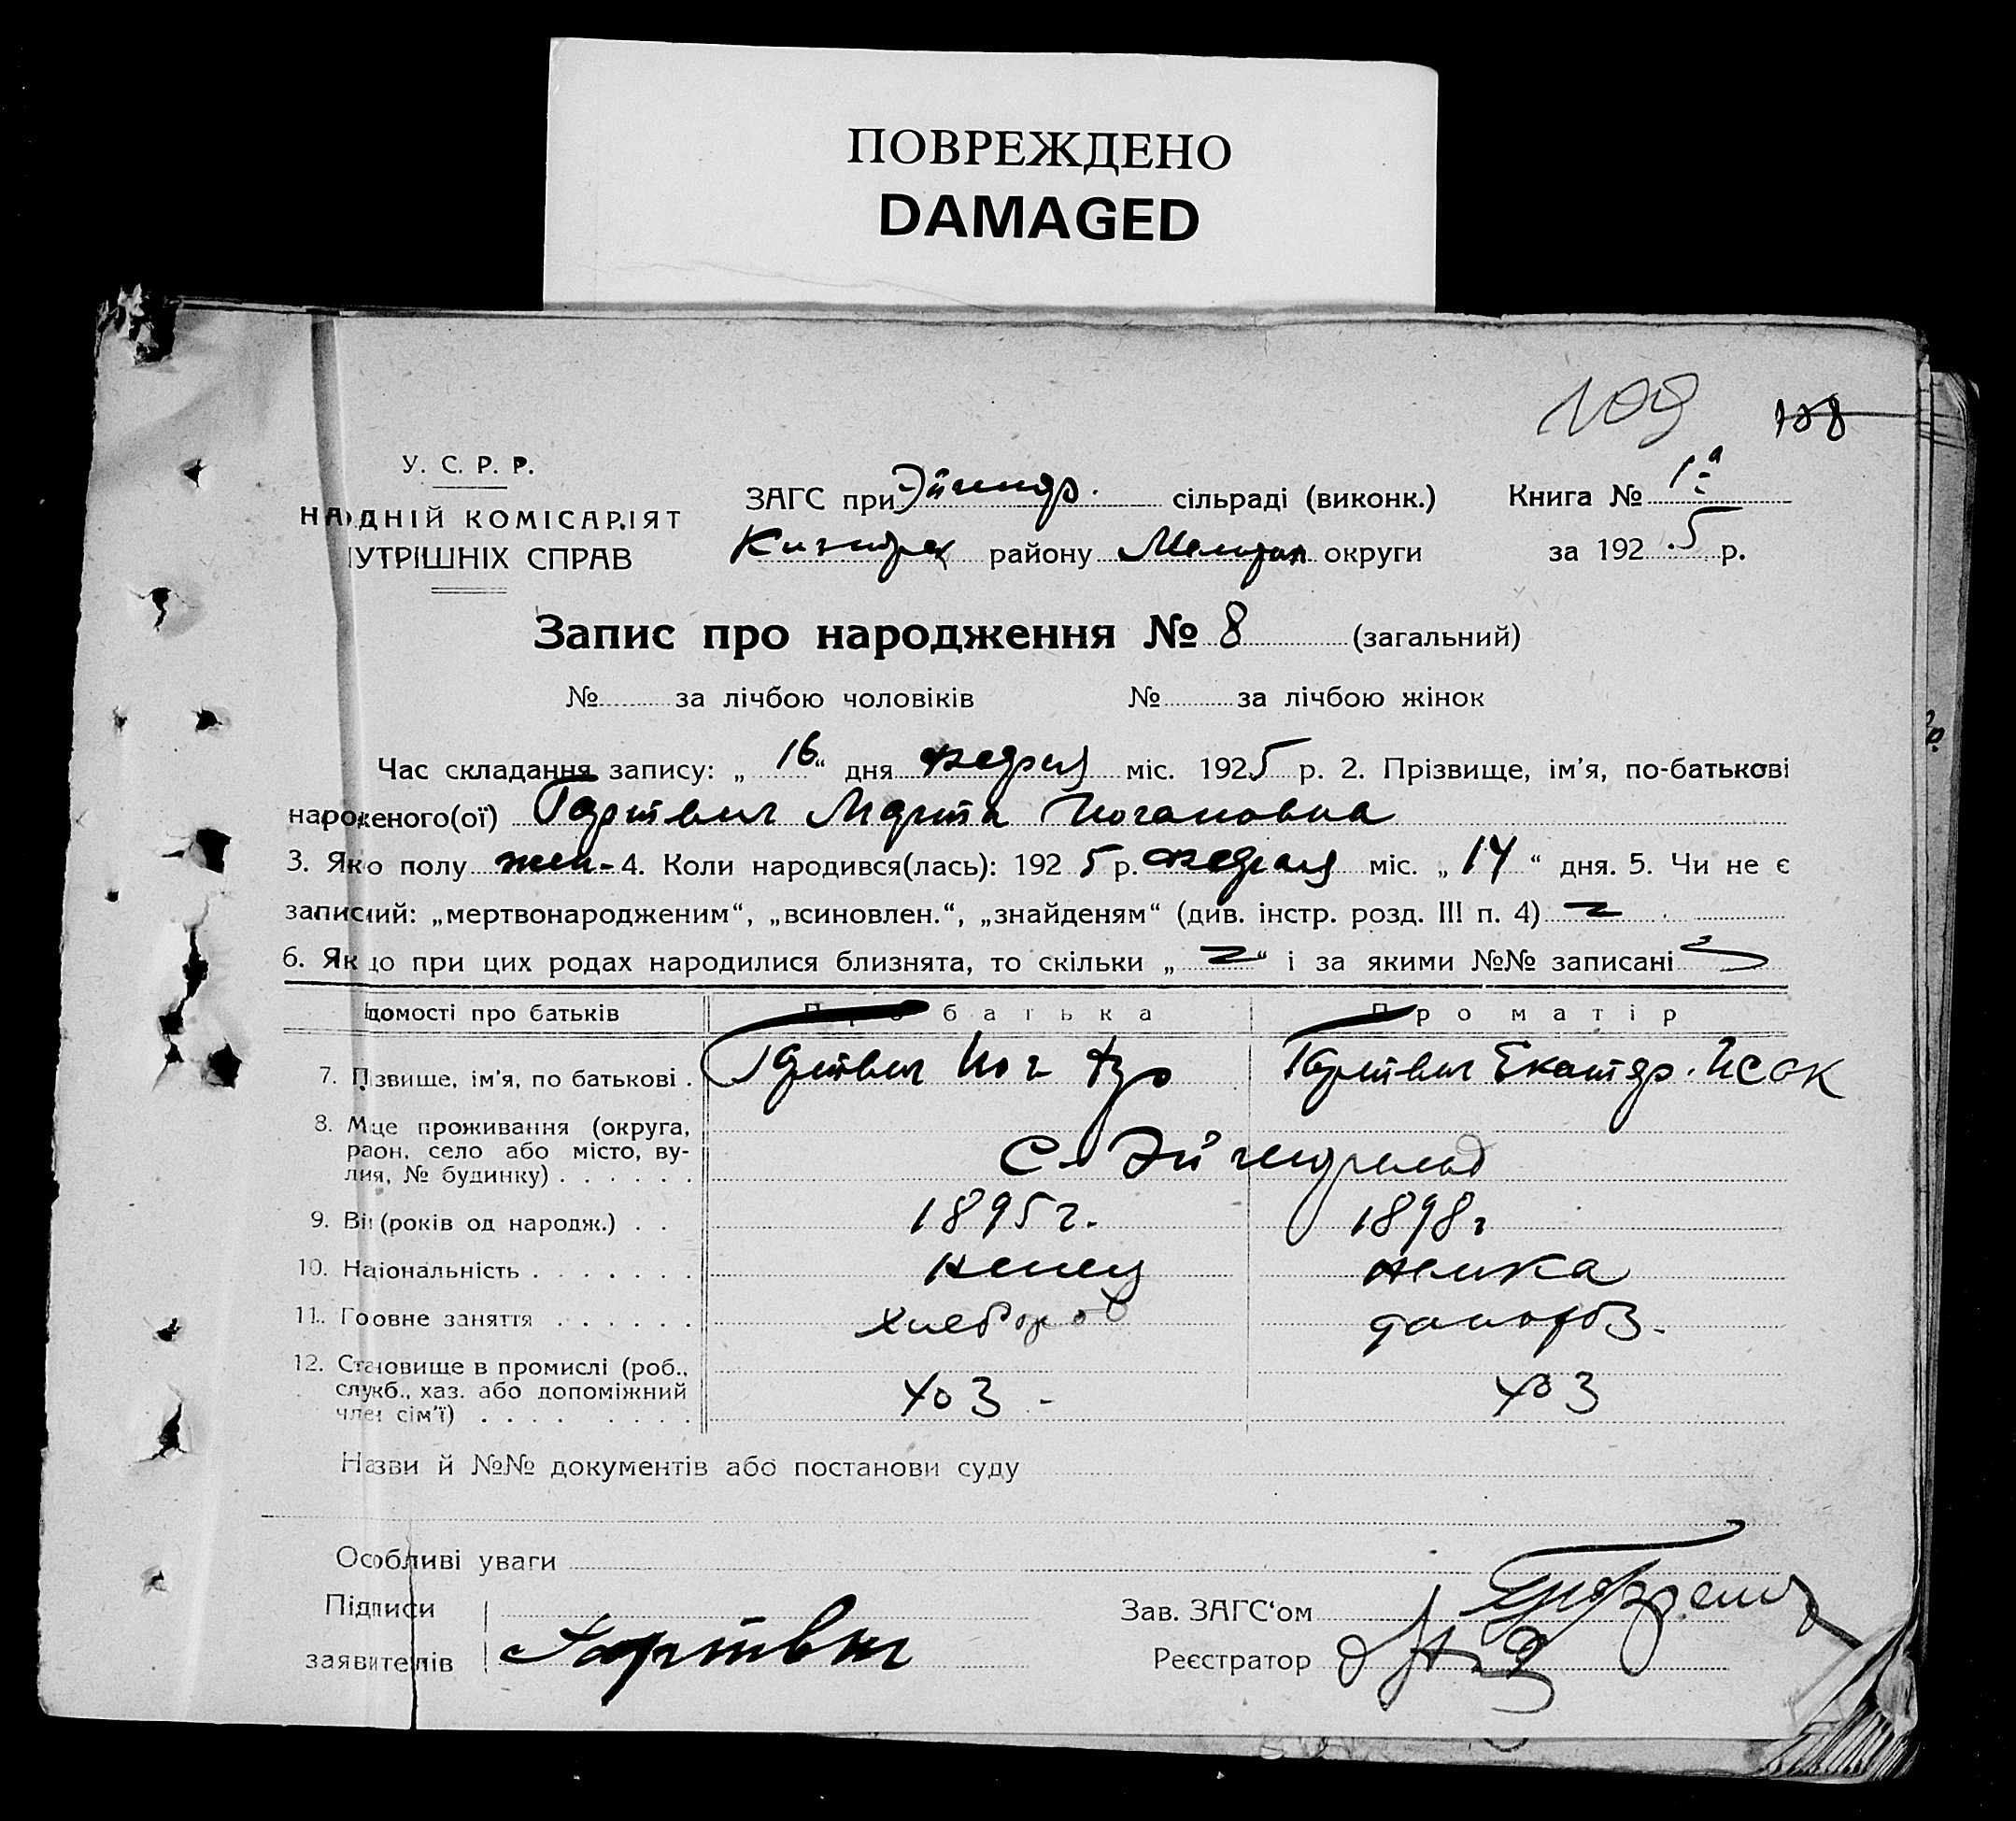 ПОВРЕЖДЕНО
DAMAGED
109 108
У. С. Р. Р.
НА ДНІЙ КОМІСАРІЯТ
УТРІШНІХ СПРАВ
ЗАГС при сільраді (виконк.) Книга № 1а
району округи за 1925 р.
Запис про народження № 8 (загальний)
№ за лічбою чоловіків № за лічбою жінок
Час складання запису: „ 16 “ дня февраля міс. 1925 р. 2. Прізвище, ім'я, по-батькові
народженого(ої) Гартвиг Марта Иогановна
3. Яко полу жен- 4. Коли народився(лась): 1925 р. февраля міс. „ 14 “ дня. 5. Чи не є
записаний: „мертвонародженим“, „всиновлен.“, „знайденям“ (див. інстр. розд. III п. 4)
6. Якщо при цих родах народилися близнята, то скільки „ “ і за якими №№ записані
домості про батьків Про батька Про матір
7. Прізвище, ім'я, по батькові . Гартвиг Иог Гартвиг Екатер. Исак
8. Місце проживання (округа,
район, село або місто, ву-
лиця, № будинку) . . . . . . С. Эйгенфельд
9. Вік (років од народж.) . . 1895 г. 1898 г
10. Національність . . . . . . . немец немка
11. Головне заняття . . . . . . хлебороб домороб.
12. Становище в промислі (роб.,
служб., хаз. або допоміжний
член сім'ї) . . . . . . . . хоз - хоз
Назви й №№ документів або постанови суду
Особливі уваги
Підписи Зав. ЗАГС‘ом
заявителів Гартвиг Реєстратор